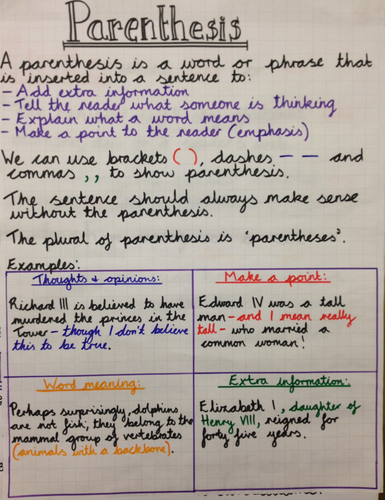 Parenthesis
A parenthesis is a word or phrase that
is inserted into a sentence to:
- Add extra information
- Tell the reader what someone is thinking
- Explain what a word means
- Make a point to the reader (emphasis)
We can use brackets ( ), dashes - - and
commas , , to show parenthesis.
The sentence should always make sense
without the parenthesis.
The plural of parenthesis is 'parentheses'.
Examples:
Thoughts & opinions:
Richard III is believed to have
murdered the princes in the
Tower - though I don't believe
this to be true.
Make a point:
Edward IV was a tall
man - and I mean really
tall - who married a
common woman!
Word meaning:
Perhaps surprisingly, dolphins
are not fish; they belong to the
mammal group of vertebrates
(animals with a backbone).
Extra information:
Elizabeth I, daughter of
Henry VIII, reigned for
forty five years.